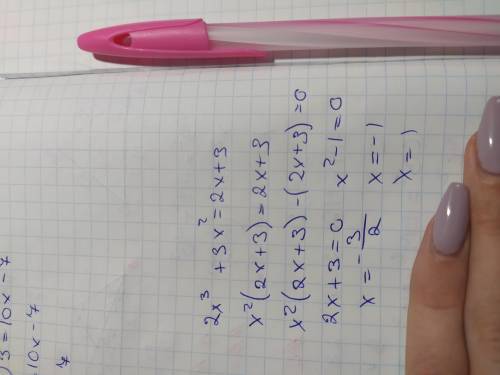 ) 3 = 10x - 7
= 10x - 7
7
2x³ + 3x² = 2x + 3
x²(2x + 3) = 2x + 3
x²(2x + 3) - (2x + 3) = 0
2x + 3 = 0 x² - 1 = 0
x = -3/2 x = -1
x = 1